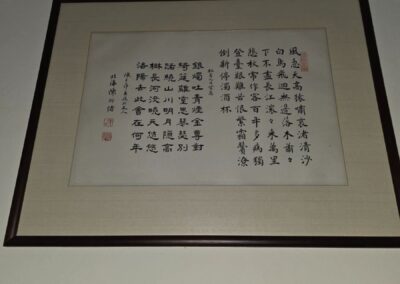 風急天高猿嘯哀渚清沙
白鳥飛迴無邊落木蕭々
下不盡長江滾々來萬里
悲秋常作客百年多病獨
登臺艱難苦恨繁霜鬢潦
倒新停濁酒杯
銀燭吐青煙金尊對
綺筵離堂思琴瑟別
路繞山川明月隱高
樹長河沒曉天悠悠
洛陽去此會在何年